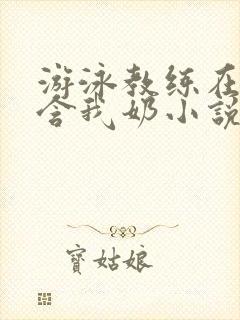 游泳教练在
含我奶小说
寶姑娘